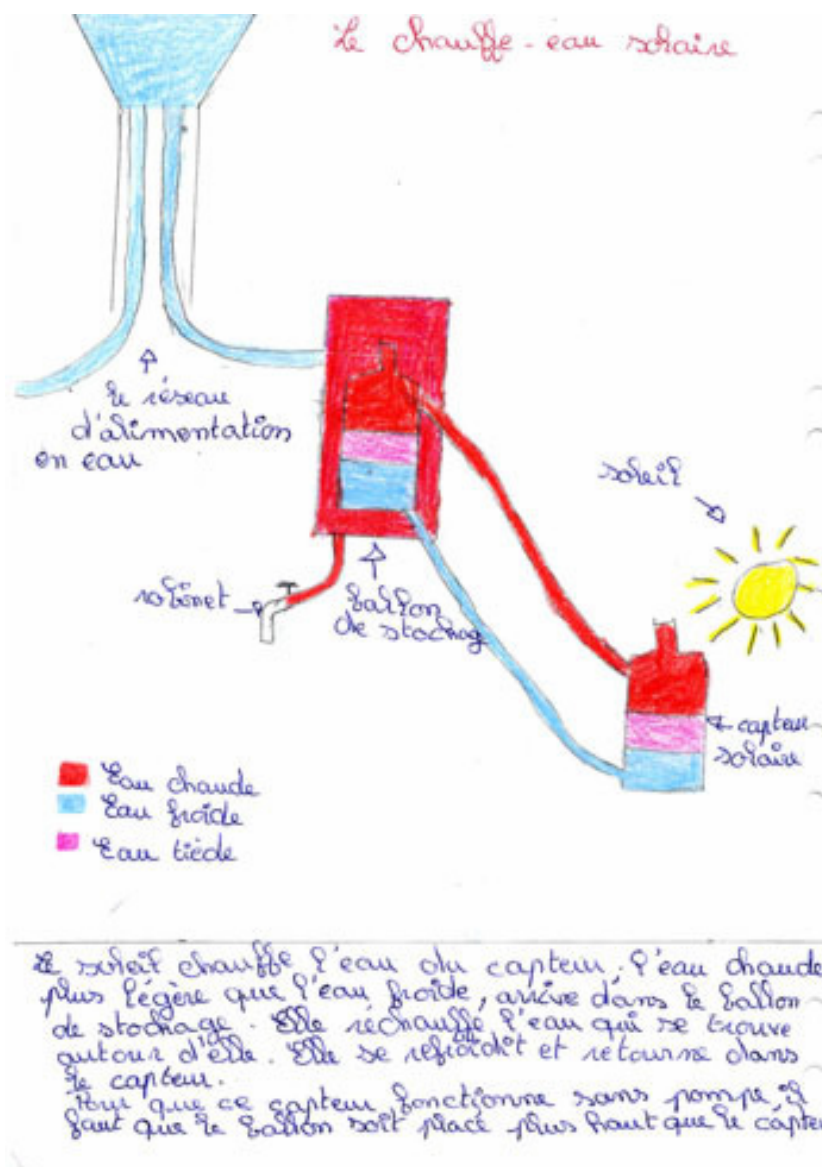 Le chauffe-eau solaire
le réseau
d'alimentation
en eau
soleil
robinet
ballon
de stochag
capteur
solaire
Eau chaude
Eau froide
Eau tiède
Le soleil chauffe l'eau du capteur, l'eau chaude
plus légère que l'eau froide, arrive dans le ballon
de stochage. Elle réchauffe l'eau qui se trouve
autour d'elle. Elle se refroidit et retourne dans
le capteur.
Pour que ce capteur fonctionne sans pompe, il
faut que le ballon soit placé plus haut que le capteu